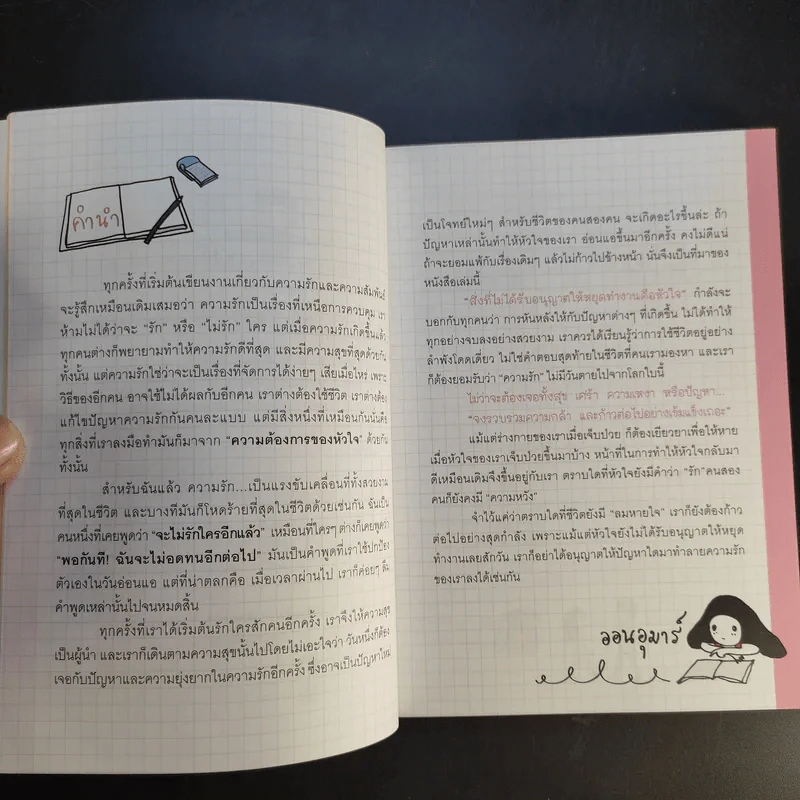 คำนำ
ทุกครั้งที่เริ่มต้นเขียนงานเกี่ยวกับความรักและความสัมพันธ์
จะรู้สึกเหมือนเดิมเสมอว่า ความรักเป็นเรื่องที่เหนือการควบคุม เรา
ห้ามไม่ได้ว่าจะ “รัก” หรือ “ไม่รัก” ใคร แต่เมื่อความรักเกิดขึ้นแล้ว
ทุกคนต่างก็พยายามทำให้ความรักดีที่สุด และมีความสุขที่สุดด้วยกัน
ทั้งนั้น แต่ความรักใช่ว่าจะเป็นเรื่องที่จัดการได้ง่ายๆ เสียเมื่อไหร่ เพราะ
วิธีของอีกคน อาจใช้ไม่ได้ผลกับอีกคน เราต่างต้องใช้ชีวิต เราต่างต้อง
แก้ไขปัญหาความรักกันคนละแบบ แต่มีสิ่งหนึ่งที่เหมือนกันนั่นคือ
ทุกสิ่งที่เราลงมือทำมันก็มาจาก “ความต้องการของหัวใจ” ด้วยกัน
ทั้งนั้น
สำหรับฉันแล้ว ความรัก...เป็นแรงขับเคลื่อนที่ทั้งสวยงาม
ที่สุดในชีวิต และบางทีมันก็โหดร้ายที่สุดในชีวิตด้วยเช่นกัน ฉันเป็น
คนหนึ่งที่เคยพูดว่า “จะไม่รักใครอีกแล้ว” เหมือนที่ใครๆ ต่างก็เคยพูดว่า
“พอกันที! ฉันจะไม่อดทนอีกต่อไป” มันเป็นคำพูดที่เราใช้ปกป้อง
ตัวเองในวันอ่อนแอ แต่ที่น่าตลกคือ เมื่อเวลาผ่านไป เราก็ค่อยๆ ลืม
คำพูดเหล่านั้นไปจนหมดสิ้น
ทุกครั้งที่เราได้เริ่มต้นรักใครสักคนอีกครั้ง เราจึงให้ความสุข
เป็นผู้นำ และเราก็เดินตามความสุขนั้นไปโดยไม่เอะใจว่า วันหนึ่งก็ต้อง
เจอกับปัญหาและความยุ่งยากในความรักอีกครั้ง ซึ่งอาจเป็นปัญหาใหม่
เป็นโจทย์ใหม่ๆ สำหรับชีวิตของคนสองคน จะเกิดอะไรขึ้นล่ะ ถ้า
ปัญหาเหล่านั้นทำให้หัวใจของเรา อ่อนแอขึ้นมาอีกครั้ง คงไม่ดีแน่
ถ้าจะยอมแพ้กับเรื่องเดิมๆ แล้วไม่ก้าวไปข้างหน้า นั่นจึงเป็นที่มาของ
หนังสือเล่มนี้
“สิ่งที่ไม่ได้รับอนุญาตให้หยุดทำงานคือหัวใจ” กำลังจะ
บอกกับทุกคนว่า การหันหลังให้กับปัญหาต่างๆ ที่เกิดขึ้น ไม่ได้ทำให้
ทุกอย่างจบลงอย่างสวยงาม เราควรได้เรียนรู้ว่าการใช้ชีวิตอยู่อย่าง
ลำพังโดดเดี่ยว ไม่ใช่คำตอบสุดท้ายในชีวิตที่คนเรามองหา และเรา
ก็ต้องยอมรับว่า “ความรัก” ไม่มีวันตายไปจากโลกใบนี้
ไม่ว่าจะต้องเจอทั้งสุข เศร้า ความเหงา หรือปัญหา...
“จงรวบรวมความกล้า และก้าวต่อไปอย่างเข้มแข็งเถอะ”
แม้แต่ร่างกายของเราเมื่อเจ็บป่วย ก็ต้องเยียวยาเพื่อให้หาย
เมื่อหัวใจของเราเจ็บป่วยขึ้นมาบ้าง หน้าที่ในการทำให้หัวใจกลับมา
ดีเหมือนเดิมจึงขึ้นอยู่กับเรา ตราบใดที่หัวใจยังมีคำว่า “รัก”คนสอง
คนก็ยังคงมี “ความหวัง”
จำไว้แค่ว่าตราบใดที่ชีวิตยังมี “ลมหายใจ” เราก็ยังต้องก้าว
ต่อไปอย่างสุดกำลัง เพราะแม้แต่หัวใจยังไม่ได้รับอนุญาตให้หยุด
ทำงานเลยสักวัน เราก็อย่าได้อนุญาตให้ปัญหาใดมาทำลายความรัก
ของเราลงได้เช่นกัน
ออนอุมาร์